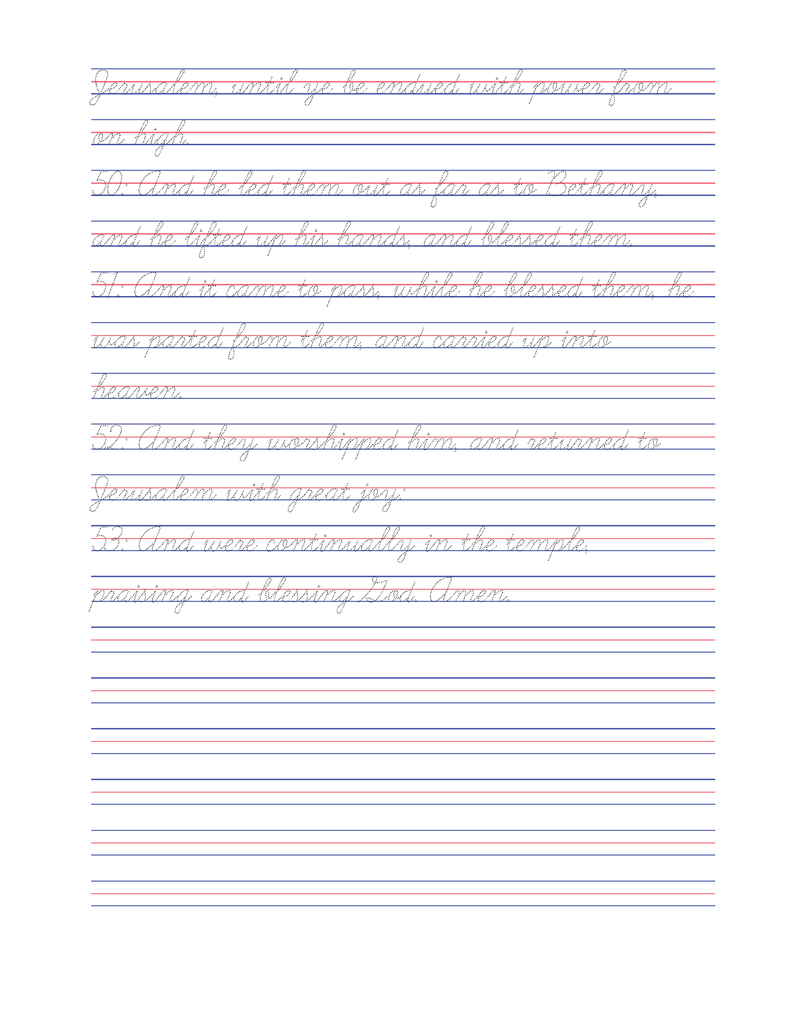 Jerusalem, until ye be endued with power from
on high.
50: And he led them out as far as to Bethany,
and he lifted up his hands, and blessed them.
51: And it came to pass, while he blessed them, he
was parted from them, and carried up into
heaven.
52: And they worshipped him, and returned to
Jerusalem with great joy:
53: And were continually in the temple,
praising and blessing God. Amen.